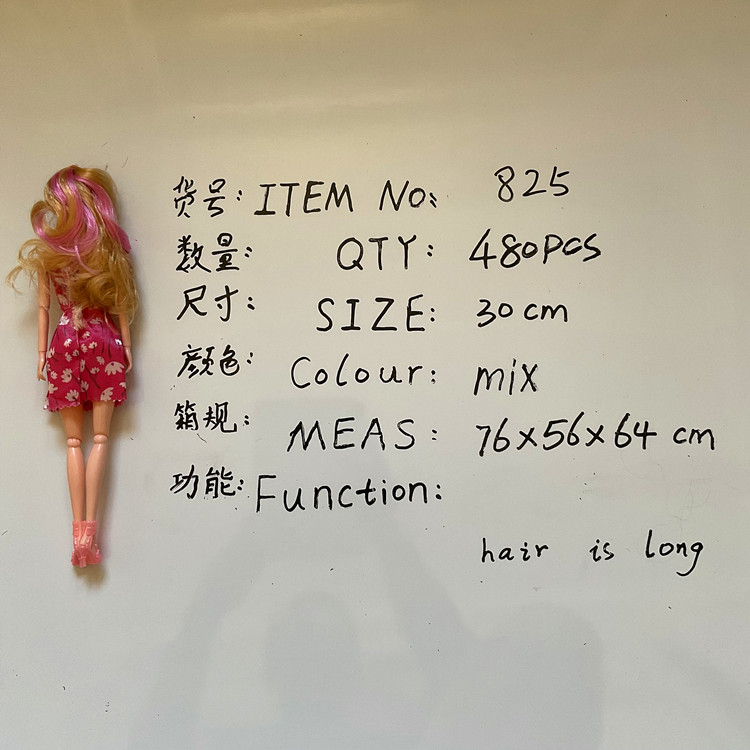 货号: ITEM NO: 825
数量: QTY: 480PCS
尺寸: SIZE: 30cm
颜色: Colour: mix
箱规: MEAS: 76x56x64 cm
功能: Function:
hair is long